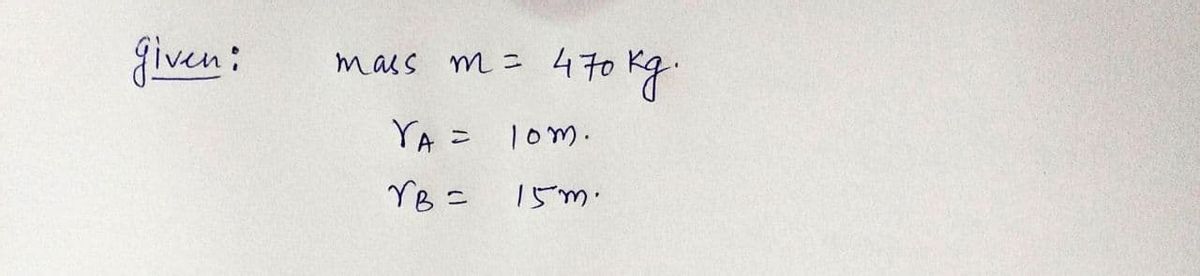 given: mass m = 470 kg.
rA = 10m.
rB = 15m.